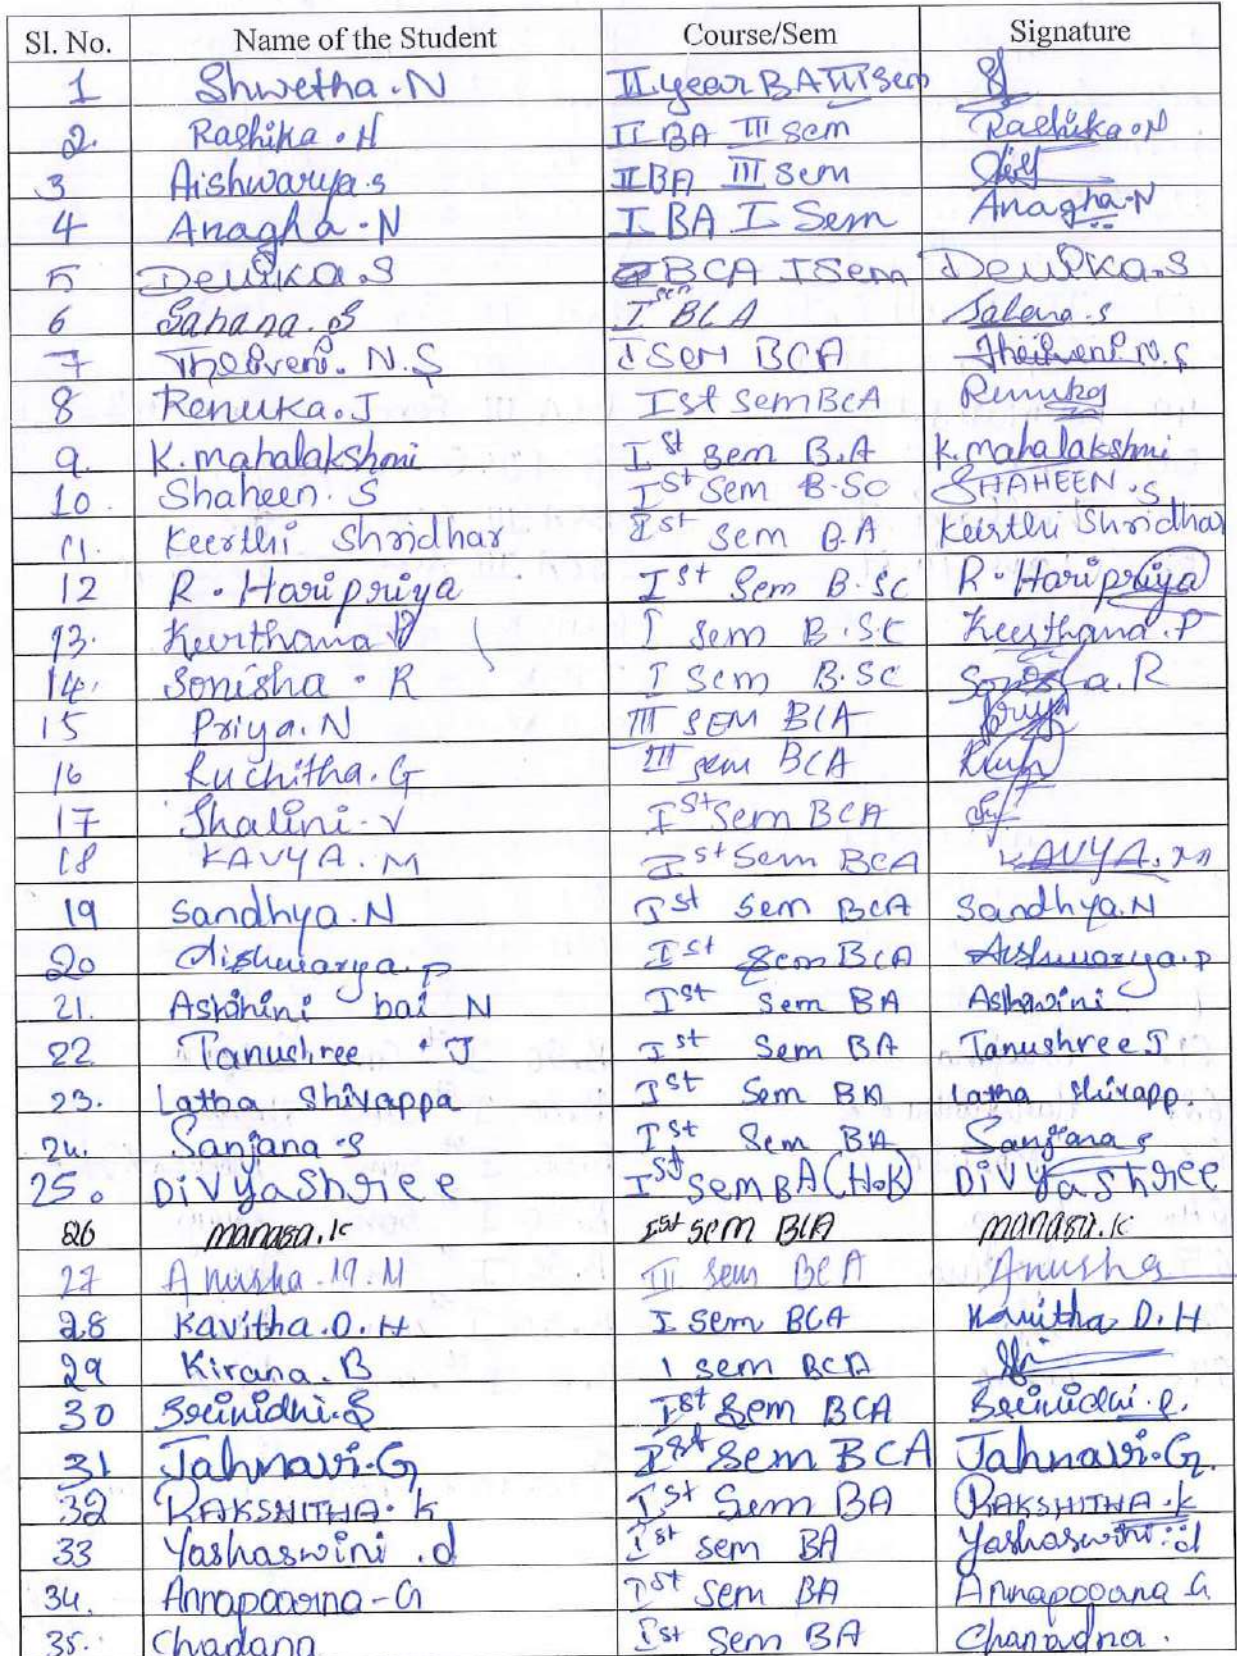 Sl. No. Name of the Student Course/Sem Signature
1 Shwetha.N II year BA III Sem
2. Rashika.H II BA III Sem Rashika.H
3 Aishwarya.s II BA III Sem
4 Anagha.N I BA I Sem Anagha.N
5 Devika.S BCA I Sem Devika.S
6 Sahana.S I sem BCA Sahana.s
7 Theiveni. N.S I SEM BCA Theiveni. N.S
8 Renuka.J Ist Sem BCA Renuka
9. K.mahalakshmi Ist Sem B.A K.mahalakshmi
10 Shaheen. S Ist Sem B.Sc SHAHEEN.S
11. Keerthi Shridhar Ist Sem B.A Keerthi Shridhar
12 R. Haripriya Ist Sem B.Sc R. Haripriya
13. Keerthana P I Sem B.SC Keerthana.P
14. Sonisha. R I Sem B.SC Sonisha.R
15 Priya.N III SEM BCA Priya
16 Ruchitha.G III sem BCA
17 Shalini.V Ist Sem BCA
18 KAVYA.M Ist Sem BCA KAVYA.M
19 Sandhya.N Ist Sem BCA Sandhya.N
20 Aishwarya.p Ist Sem BCA Aishwarya.p
21. Ashwini bai N Ist Sem BA Ashwini
22 Tanushree .J Ist Sem BA Tanushree J
23. Latha Shivappa Ist Sem BA Latha Shivapp.
24. Sanjana.s Ist Sem BA Sanjana s
25. Divyashree Ist Sem BA (H.K) Divyashree
26 manasa.k Ist Sem BCA manasa.k
27 Anusha.M.M III Sem BCA Anusha
28 Kavitha.D.H I Sem BCA Kavitha D.H
29 Kirana.B I Sem BCA
30 Srinidhi.S Ist Sem BCA Srinidhi.S.
31 Jahnavi.G Ist Sem BCA Jahnavi.G.
32 RAKSHITHA.K Ist Sem BA RAKSHITHA.K
33 Yashaswini .d Ist Sem BA Yashaswini.d
34. Annapoorna-G Ist Sem BA Annapoorna G
35. Chadana Ist Sem BA Chanadna.